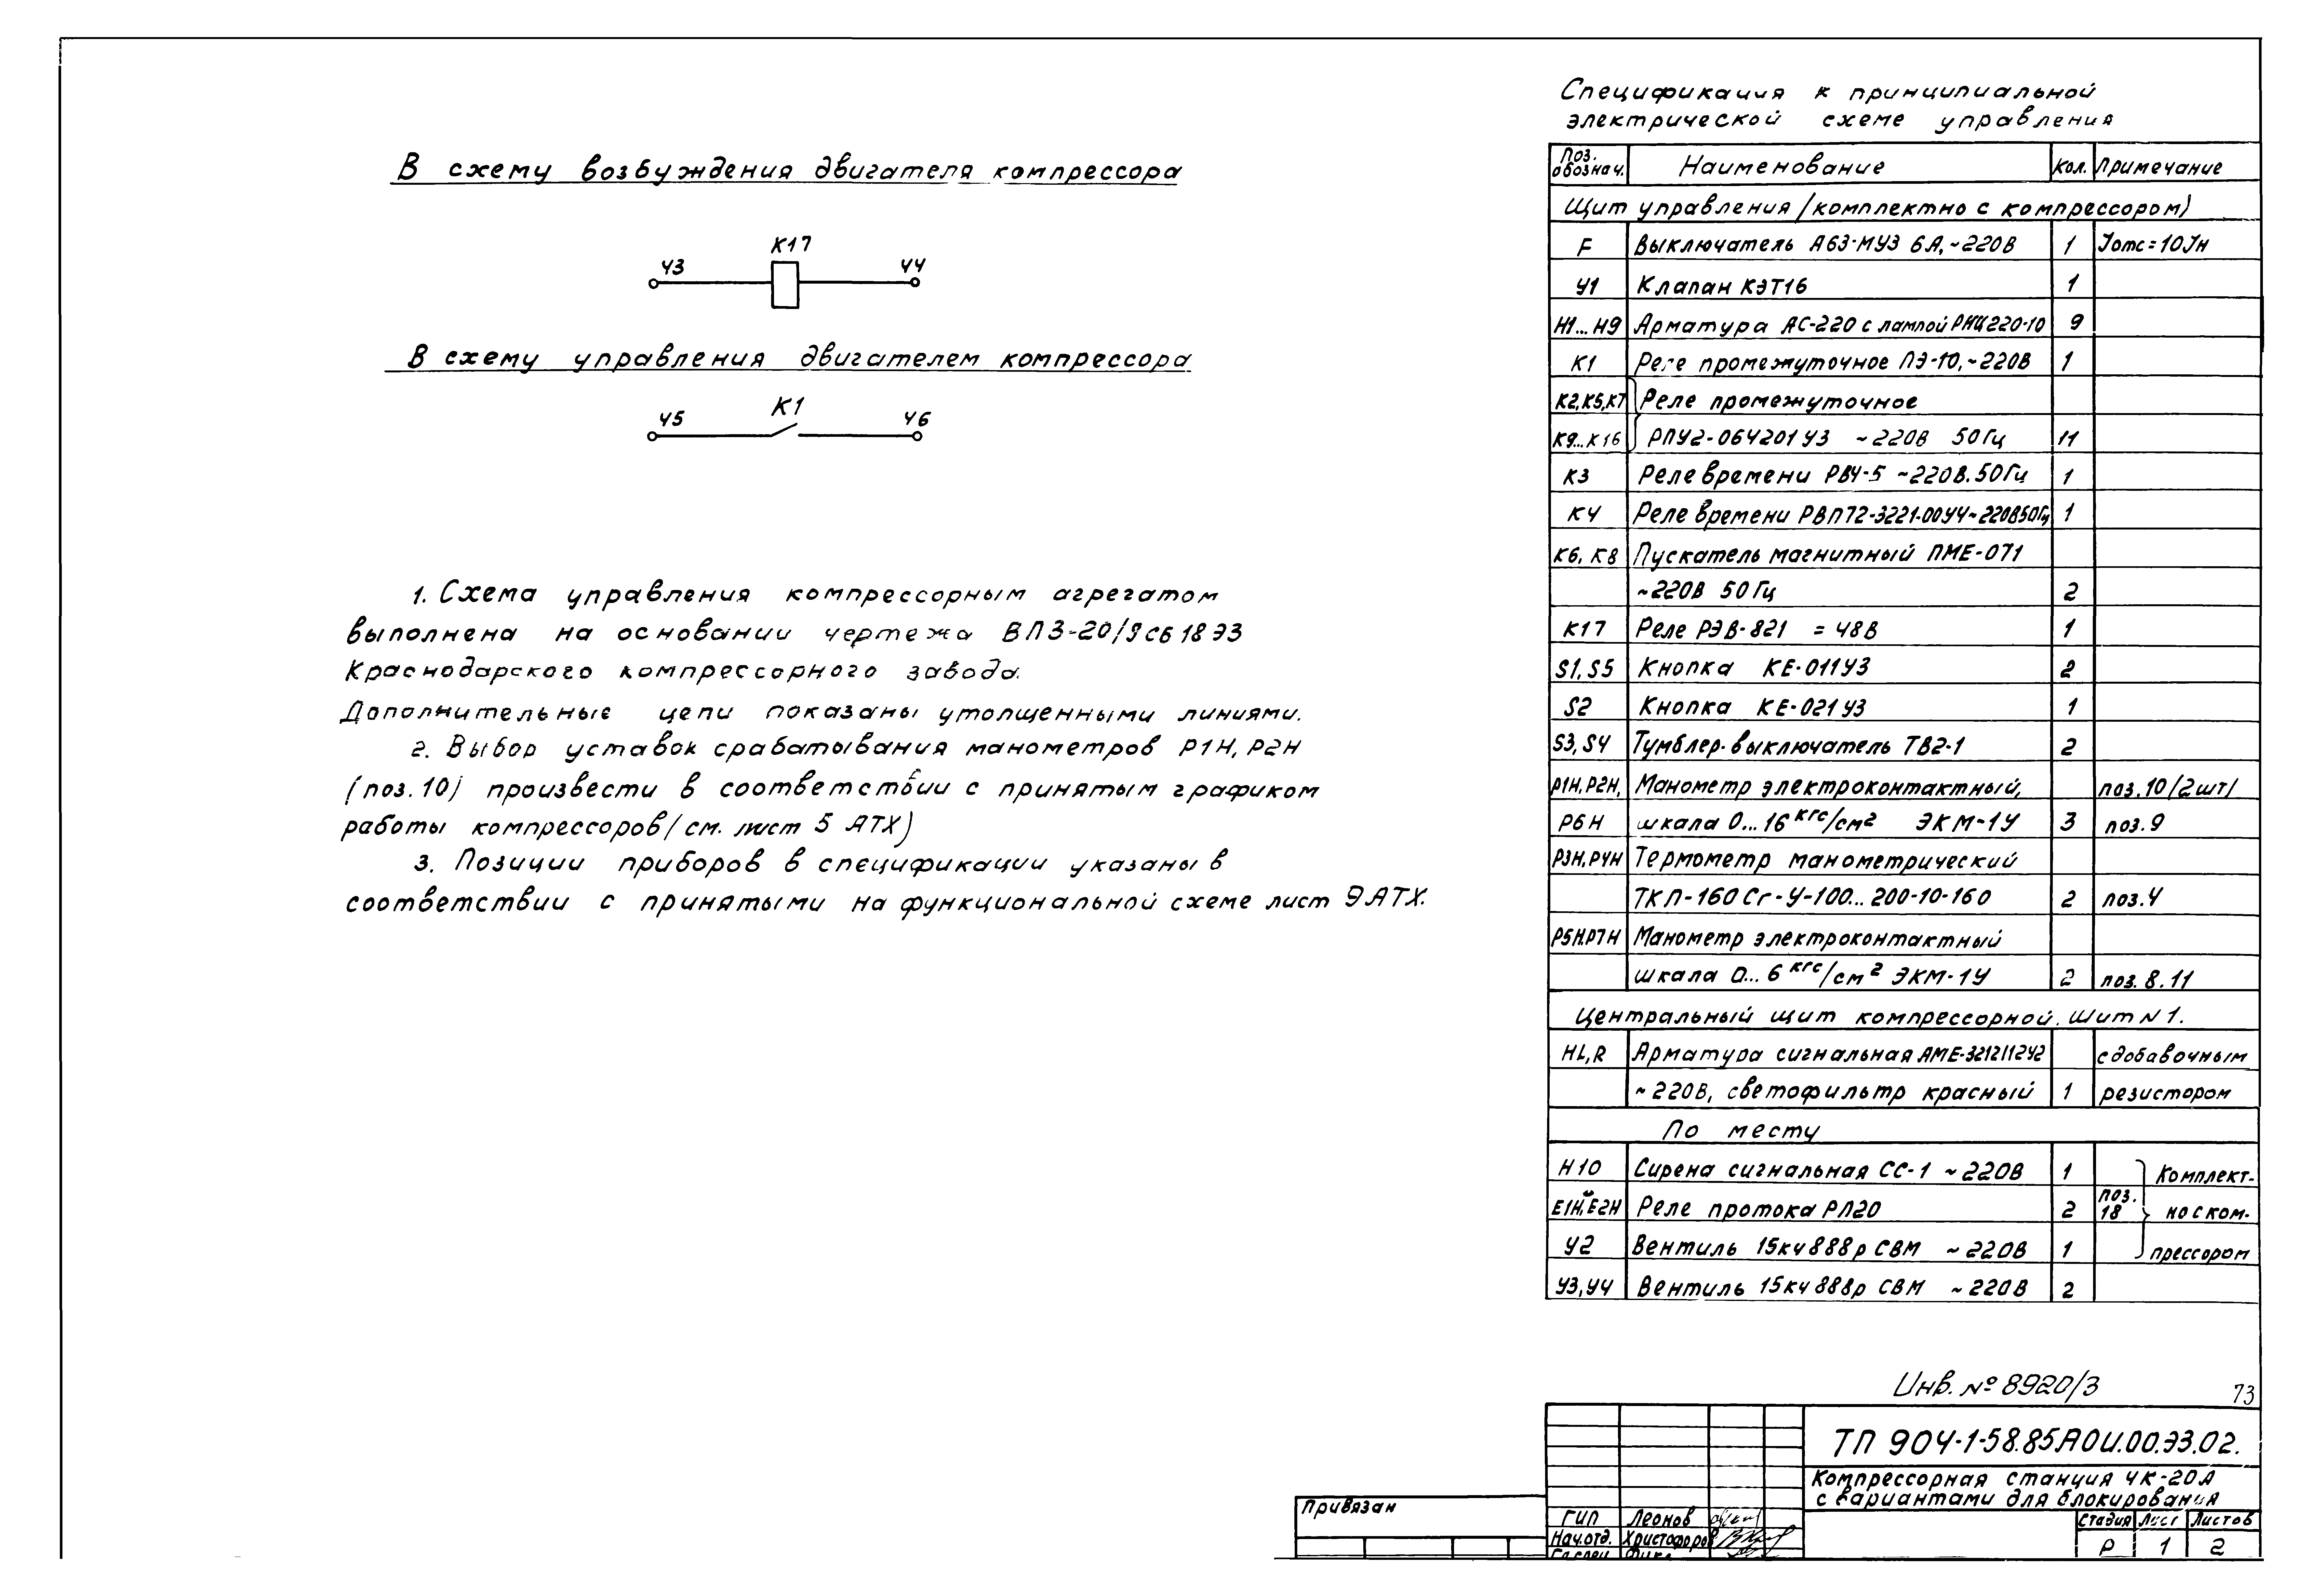 В схему возбуждения двигателя компрессора
43 К17 44
В схему управления двигателем компрессора
45 К1 46
1. Схема управления компрессорным агрегатом
выполнена на основании чертежа ВП3-20/9сб18Э3
Краснодарского компрессорного завода.
Дополнительные цепи показаны утолщенными линиями.
2. Выбор уставок срабатывания манометров Р1Н, Р2Н
(поз.10) произвести в соответствии с принятым графиком
работы компрессоров/см. лист 5 АТХ)
3. Позиции приборов в спецификации указаны в
соответствии с принятыми на функциональной схеме лист 9АТХ.
Спецификация к принципиальной
электрической схеме управления
Поз. обознач. Наименование Кол. Примечание
Щит управления /комплектно с компрессором)
F Выключатель А63-МУ3 6А,~220В 1 Jотс=10Jн
У1 Клапан КЭТ16 1
Н1...Н9 Арматура АС-220 с лампой РНЦ220-10 9
К1 Реле промежуточное ПЭ-10,~220В 1
К2,К5,К7 Реле промежуточное
К9...К16 РПУ2-064201У3 ~220В 50Гц 11
К3 Реле времени РВ4-5 ~220В.50Гц 1
К4 Реле времени РВП72-3221-00У4~220В50Гц 1
К6, К8 Пускатель магнитный ПМЕ-071
~220В 50Гц 2
К17 Реле РЭВ-821 =48В 1
S1, S5 Кнопка КЕ-011У3 2
S2 Кнопка КЕ-021У3 1
S3, S4 Тумблер-выключатель ТВ2-1 2
Р1Н,Р2Н, Манометр электроконтактный, поз.10/2шт/
Р6Н шкала 0...16 кгс/см² ЭКМ-1У 3 поз.9
Р3Н,Р4Н Термометр манометрический
ТКП-160Сг-У-100...200-10-160 2 поз.4
Р5Н,Р7Н Манометр электроконтактный
шкала 0...6 кгс/см² ЭКМ-1У 2 поз. 8.11
Центральный щит компрессорной. Щит N1.
HL,R Арматура сигнальная АМЕ-321211292 с добавочным
~220В, светофильтр красный 1 резистором
По месту
Н10 Сирена сигнальная СС-1 ~220В 1 Комплект-
Е1Н,Е2Н Реле протока РП20 2 поз. 18 но с ком-
У2 Вентиль 15кч888р СВМ ~220В 1 прессором
У3,У4 Вентиль 15кч888р СВМ ~220В 2
Инв. № 8920/3 73
ТП 904-1-58.85А0И.00.Э3.02.
Компрессорная станция 4К-20А
с вариантами для блокирования
Привязан
ГИП Леонов
Нач.отд. Христофоров
Стадия Лист Листов
Р 1 2